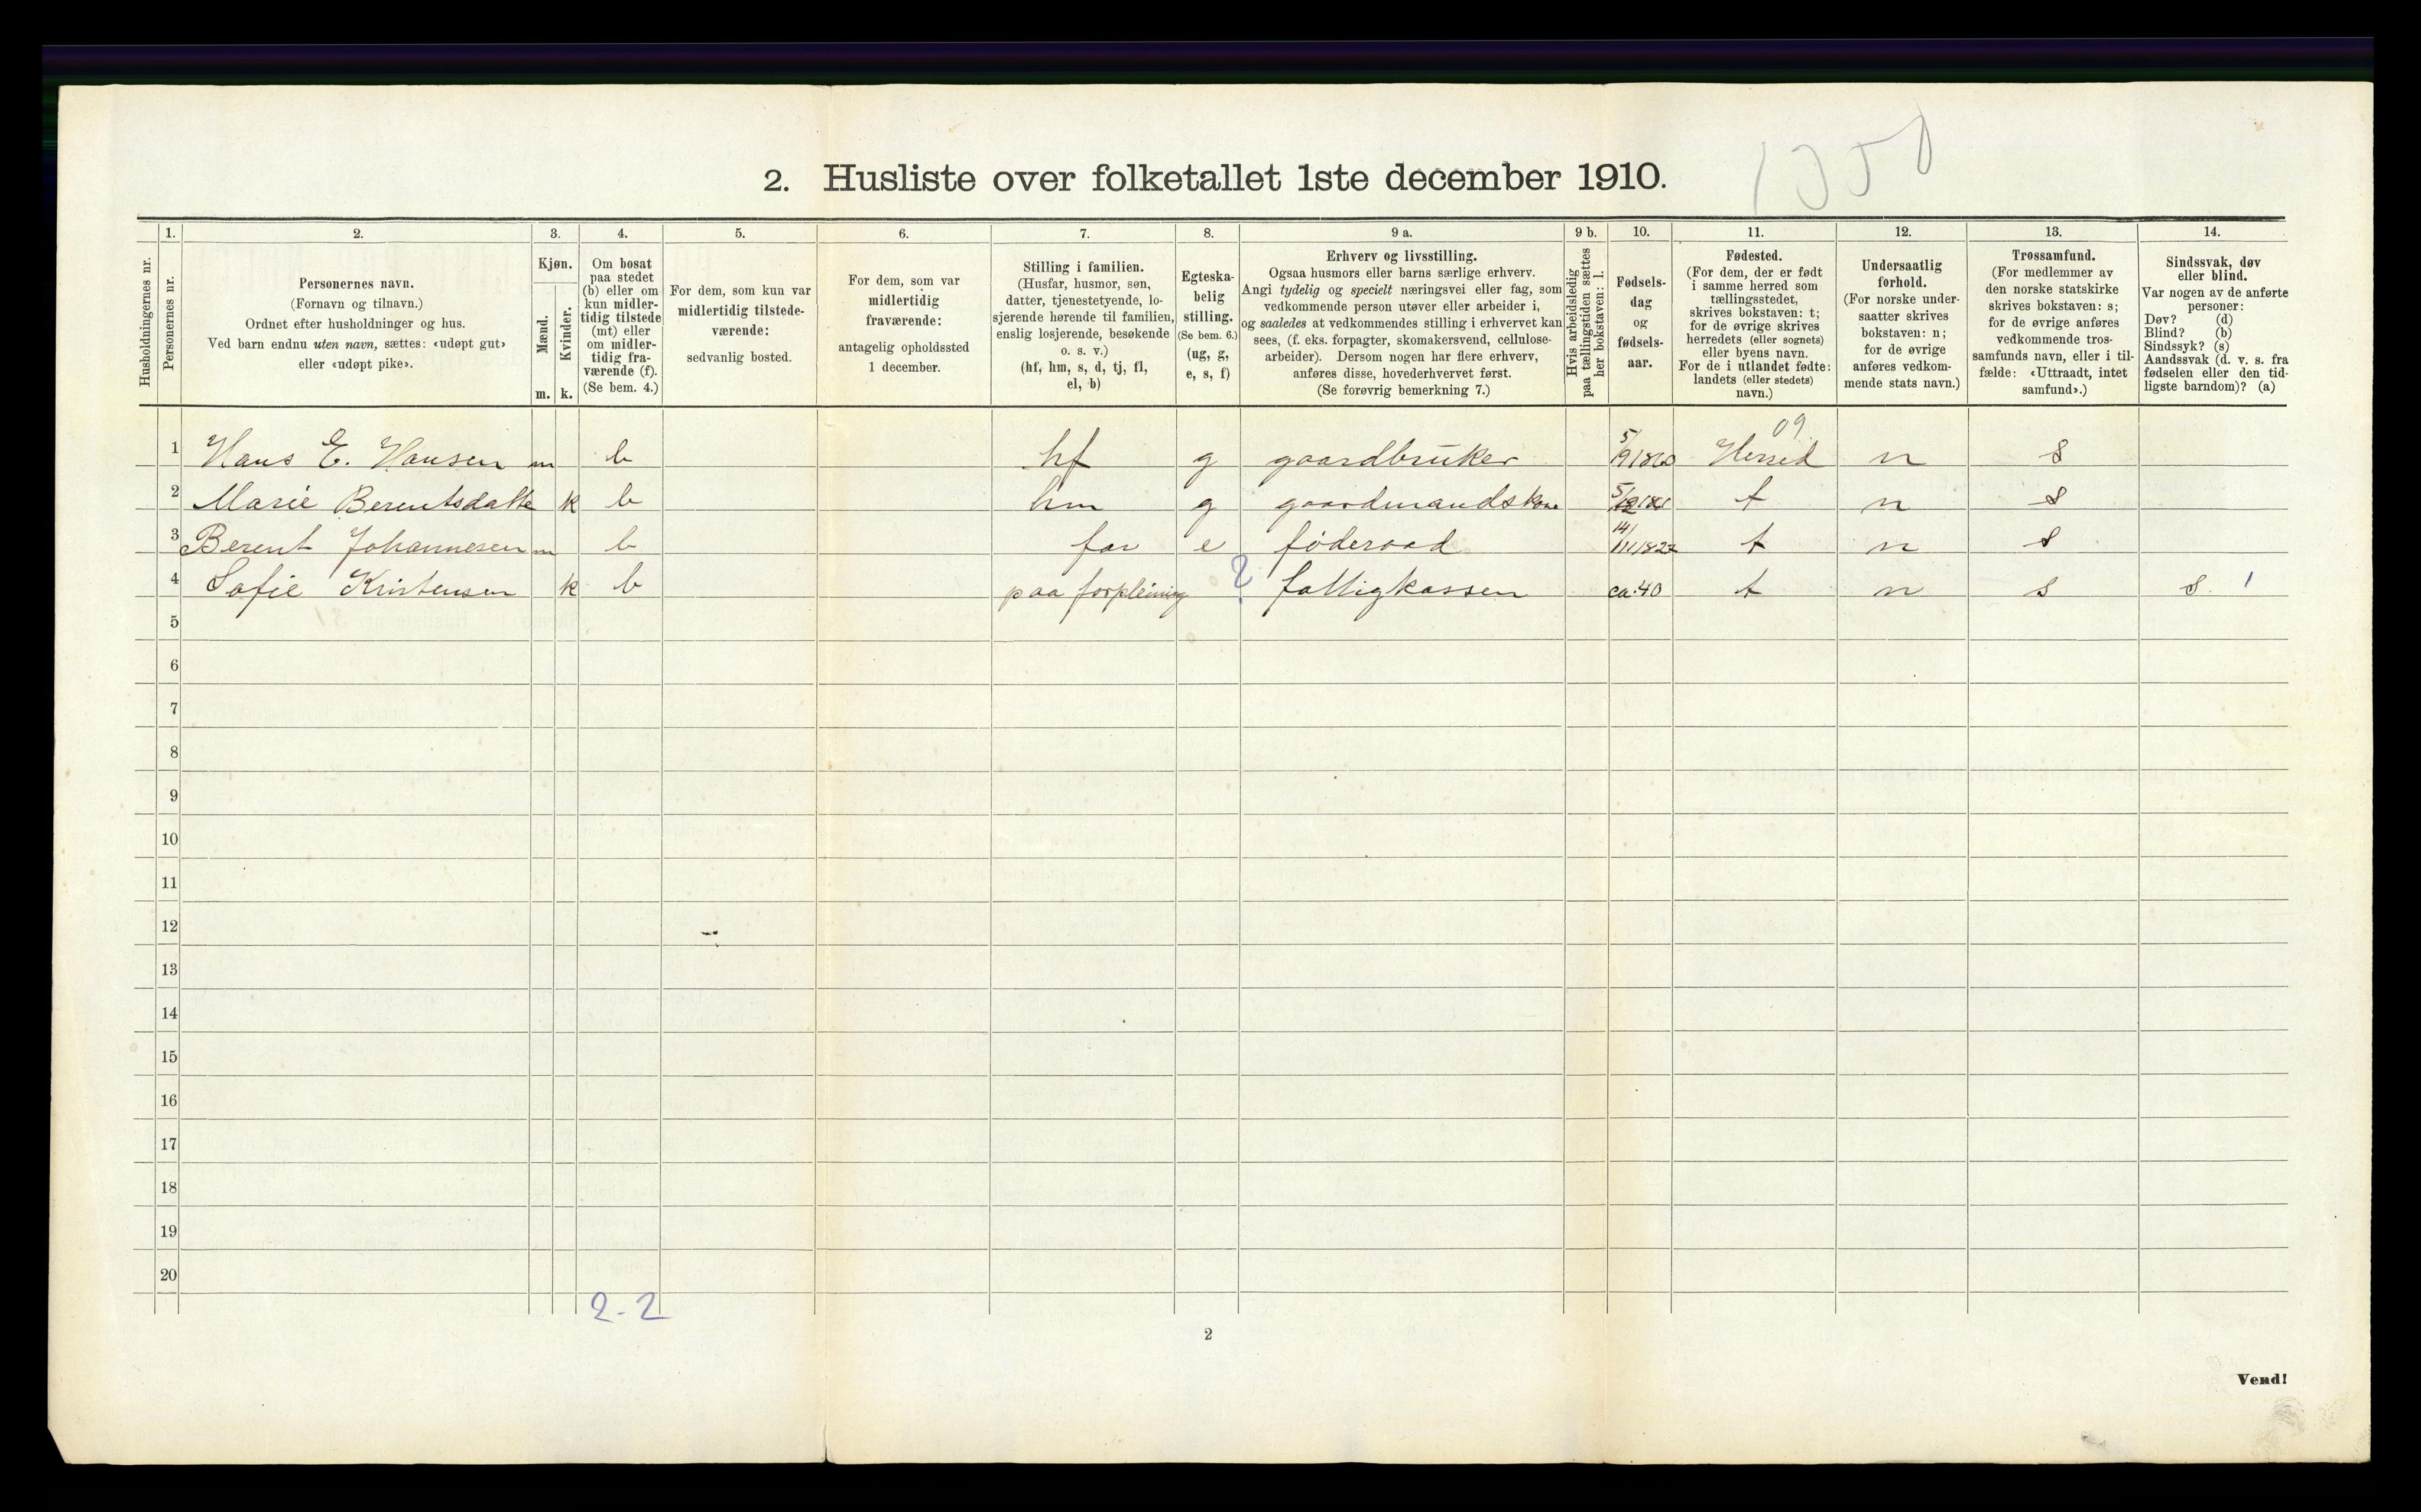 1350
2. Husliste over folketallet 1ste december 1910.
Husholdningernes nr.
1.
Personernes nr.
2.
Personernes navn.
(Fornavn og tilnavn.)
Ordnet efter husholdninger og hus.
Ved barn endnu uten navn, sættes: «udøpt gut»
eller «udøpt pike».
3.
Kjøn.
Mænd.
Kvinder.
m. k.
4.
Om bosat
paa stedet
(b) eller om
kun midler-
tidig tilstede
(mt) eller
om midler-
tidig fra-
værende (f).
(Se bem. 4.)
5.
For dem, som kun var
midlertidig tilstede-
værende:
sedvanlig bosted.
6.
For dem, som var
midlertidig
fraværende:
antagelig opholdssted
1 december.
7.
Stilling i familien.
(Husfar, husmor, søn,
datter, tjenestetyende, lo-
sjerende hørende til familien,
enslig losjerende, besøkende
o. s. v.)
(hf, hm, s, d, tj, fl,
el, b)
8.
Egteska-
belig
stilling.
(Se bem. 6.)
(ug, g,
e, s, f)
9 a.
Erhverv og livsstilling.
Ogsaa husmors eller barns særlige erhverv.
Angi tydelig og specielt næringsvei eller fag, som
vedkommende person utøver eller arbeider i,
og saaledes at vedkommendes stilling i erhvervet kan
sees, (f. eks. forpagter, skomakersvend, cellulose-
arbeider). Dersom nogen har flere erhverv,
anføres disse, hovederhvervet først.
(Se forøvrig bemerkning 7.)
9 b.
Hvis arbeidsledig
paa tællingstiden sættes
her bokstaven: l.
10.
Fødsels-
dag
og
fødsels-
aar.
11.
Fødested.
(For dem, der er født
i samme herred som
tællingsstedet,
skrives bokstaven: t;
for de øvrige skrives
herredets (eller sognets)
eller byens navn.
For de i utlandet fødte:
landets (eller stedets)
navn.)
12.
Undersaatlig
forhold.
(For norske under-
saatter skrives
bokstaven: n;
for de øvrige
anføres vedkom-
mende stats navn.)
13.
Trossamfund.
(For medlemmer av
den norske statskirke
skrives bokstaven: s;
for de øvrige anføres
vedkommende tros-
samfunds navn, eller i til-
fælde: «Uttraadt, intet
samfund».)
14.
Sindssvak, døv
eller blind.
Var nogen av de anførte
personer:
Døv? (d)
Blind? (b)
Sindssyk? (s)
Aandssvak (d. v. s. fra
fødselen eller den tid-
ligste barndom)? (a)
09
1 Hans E. Hansen m b hf g gaardbruker 5/9 1860 Herred n s
2 Marie Berentsdatte k b hm g gaardmandskone t n s
3 Berent Johannesen m b far e føderaad 14/11 1827 t n s
4 Sofie Kristensen k b paa forpleining ? fattigkassen ca. 40 t n s s. 1
5
6
7
8
9
10
11
12
13
14
15
16
17
18
19
20
2-2
2
Vend!